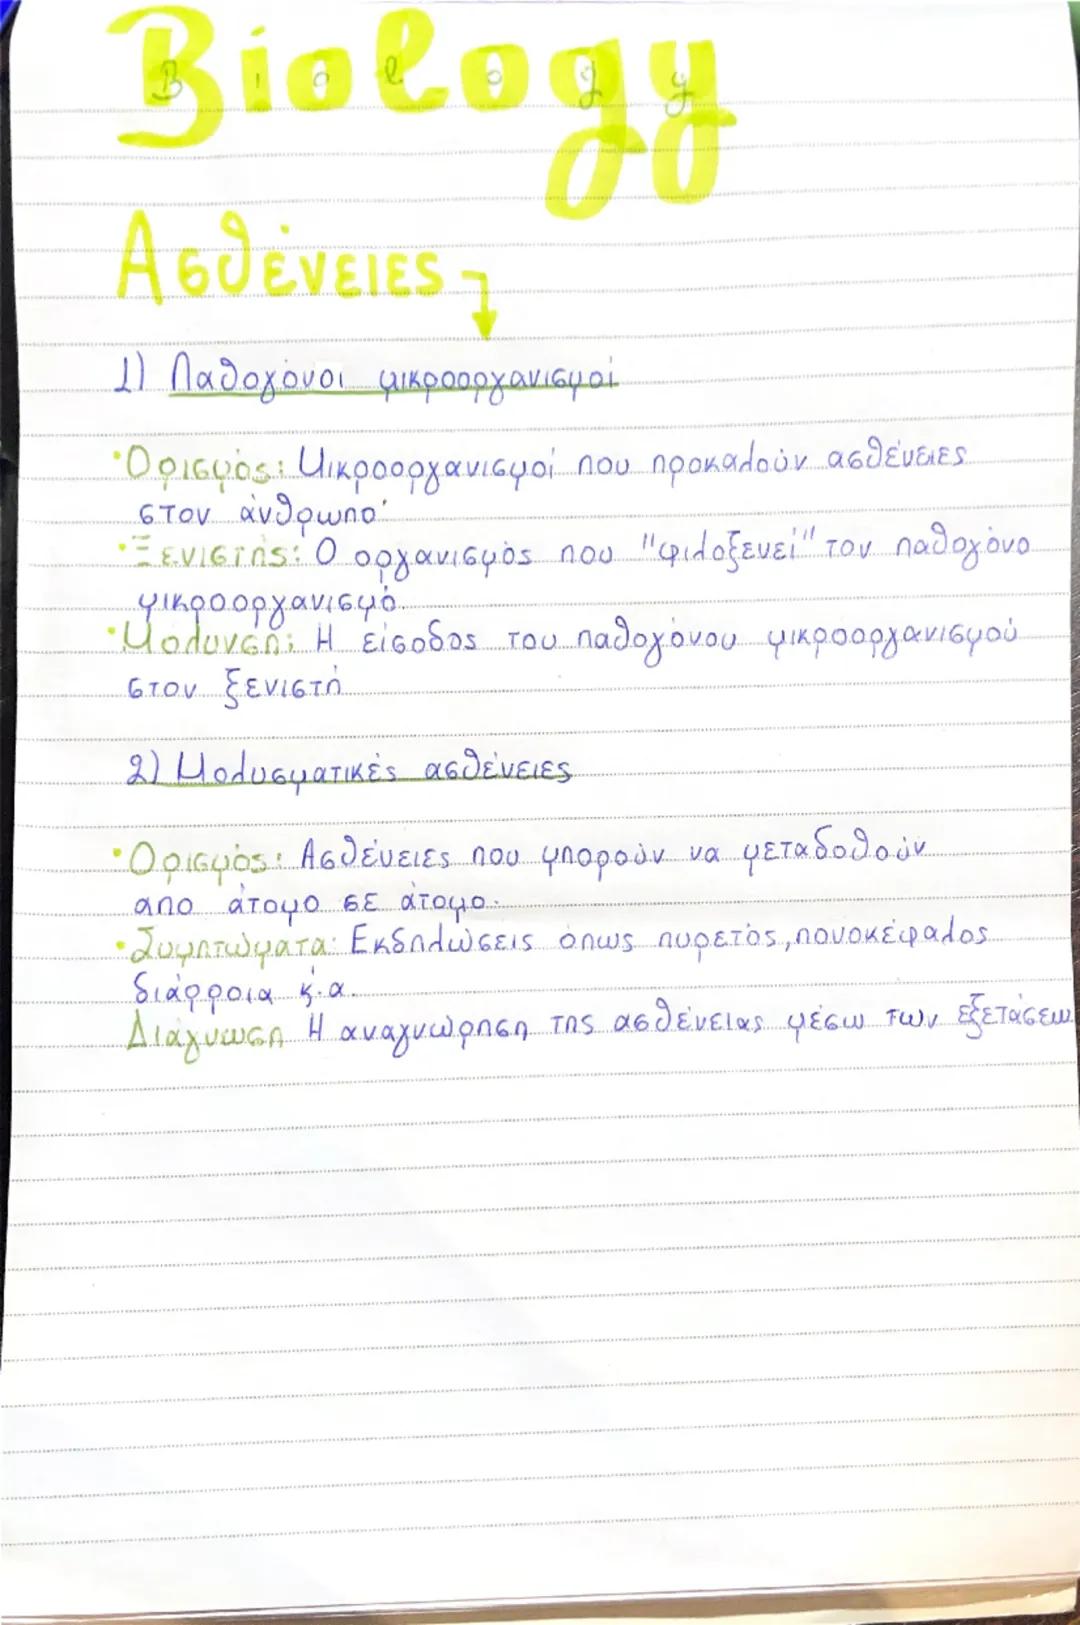 Biology
Biology
Ασθένειες
1) Παθογόνοι μικροοργανισμοί
•Ορισμός: Μικροοργανισμοί που προκαλούν ασθένειες
στον άνθρωπο
•Ξενιστής: Ο οργανισμός που "φιλοξενεί" τον παθογόνο
μικροοργανισμό.
•Μόλυνση: Η είσοδος του παθογόνου μικροοργανισμού
στον ξενιστή
2) Μολυσματικές ασθένειες
•Ορισμός: Ασθένειες που μπορούν να μεταδοθούν
απο άτομο σε άτομο.
•Συμπτώματα: Εκδηλώσεις όπως πυρετός, πονοκέφαλος
διάρροια κ.α.
Διάγνωση Η αναγνώρηση της ασθένειας μέσω των εξετάσεω